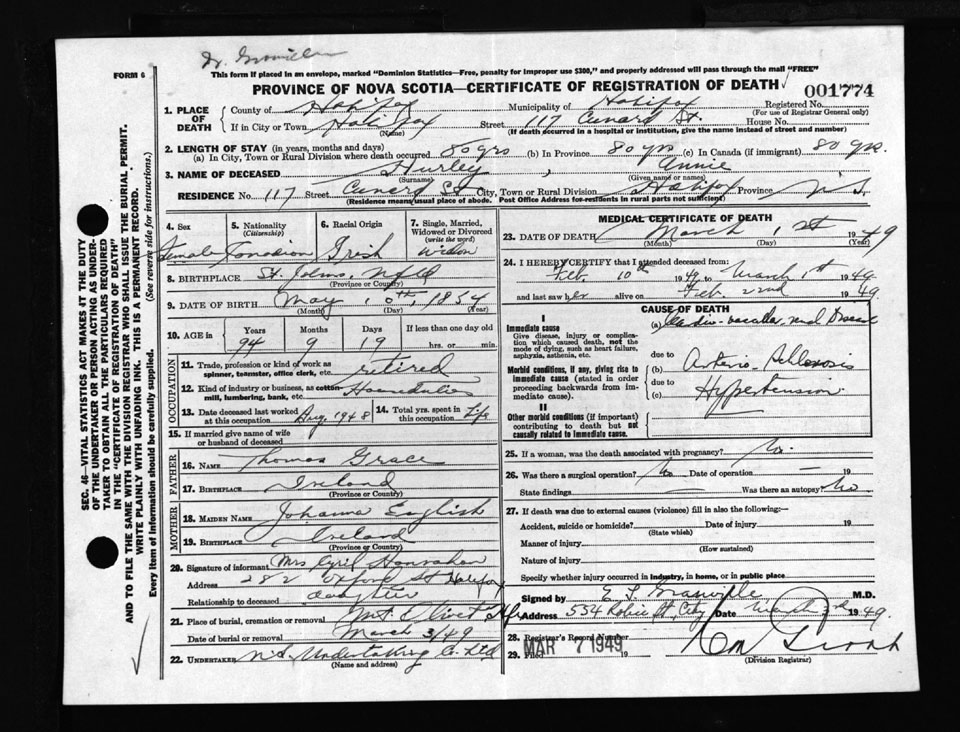 FORM 6
This form if placed in an envelope, marked "Dominion Statistics—Free, penalty for improper use $300," and properly addressed will pass through the mail "FREE"
PROVINCE OF NOVA SCOTIA—CERTIFICATE OF REGISTRATION OF DEATH
001774
1. PLACE OF DEATH
County of Halifax Municipality of Halifax Registered No.
(For use of Registrar General only)
If in City or Town Halifax Street 117 Cunard St. House No.
(Name) (If death occurred in a hospital or institution, give the name instead of street and number)
2. LENGTH OF STAY (in years, months and days)
(a) In City, Town or Rural Division where death occurred 80 yrs (b) In Province 80 yrs (c) In Canada (if immigrant) 80 yrs.
3. NAME OF DECEASED Hurley, Annie
(Surname) (Given name or names)
RESIDENCE No. 117 Street Cunard St City, Town or Rural Division Halifax Province N.S.
(Residence means usual place of abode. Post Office Address for residents in rural parts not sufficient)
4. Sex Female
5. Nationality (Citizenship) Canadian
6. Racial Origin Irish
7. Single, Married, Widowed or Divorced (write the word) Widow
8. BIRTHPLACE St. Johns, Nfld
(Province or Country)
9. DATE OF BIRTH May 10th, 1854
(Month) (Day) (Year)
10. AGE in Years Months Days If less than one day old
94 9 19 hrs. or min.
OCCUPATION
11. Trade, profession or kind of work as spinner, teamster, office clerk, etc. retired
12. Kind of industry or business, as cotton mill, lumbering, bank, etc. Household
13. Date deceased last worked at this occupation Aug. 1948
14. Total yrs. spent in this occupation Life
15. If married give name of wife or husband of deceased
FATHER
16. NAME Thomas Grace
17. BIRTHPLACE Ireland
(Province or Country)
MOTHER
18. MAIDEN NAME Johanna English
19. BIRTHPLACE Ireland
(Province or Country)
20. Signature of informant Mrs Cyril
Address 282 Oxford St Halifax
Relationship to deceased daughter
21. Place of burial, cremation or removal Mt. Olivet Hfx
Date of burial or removal March 3/49
22. UNDERTAKER N.S. Undertaking Co. Ltd
(Name and address)
MEDICAL CERTIFICATE OF DEATH
23. DATE OF DEATH March 1st 1949
(Month) (Day) (Year)
24. I HEREBY CERTIFY that I attended deceased from:
Feb. 10th 1949 to March 1st 1949
and last saw her alive on Feb. 22nd 1949
CAUSE OF DEATH
I
Immediate cause
Give disease, injury or complication which caused death, not the mode of dying, such as heart failure, asphyxia, asthenia, etc.
(a) Cardio-vascular renal Disease
due to
Morbid conditions, if any, giving rise to immediate cause (stated in order proceeding backwards from immediate cause).
(b) Arterio Sclerosis
due to
(c) Hypertension
II
Other morbid conditions (if important) contributing to death but not causally related to immediate cause.
25. If a woman, was the death associated with pregnancy? No.
26. Was there a surgical operation? No Date of operation — 19
State findings — Was there an autopsy? No.
27. If death was due to external causes (violence) fill in also the following:—
Accident, suicide or homicide? Date of injury 19
(State which)
Manner of injury
(How sustained)
Nature of injury
Specify whether injury occurred in industry, in home, or in public place
Signed by E. F. Granville M.D.
Address 554 Robie St, City Date March 3rd 1949
28. Registrar's Record Number
29. Filed MAR 7 1949 19
(Division Registrar)
SEC. 46—VITAL STATISTICS ACT MAKES IT THE DUTY
OF THE UNDERTAKER OR PERSON ACTING AS UNDERTAKER TO OBTAIN ALL THE PARTICULARS REQUIRED
IN THE "CERTIFICATE OF REGISTRATION OF DEATH"
AND TO FILE THE SAME WITH THE DIVISION REGISTRAR WHO SHALL ISSUE THE BURIAL PERMIT.
WRITE PLAINLY WITH UNFADING INK. THIS IS A PERMANENT RECORD.
Every item of information should be carefully supplied. (See reverse side for instructions.)